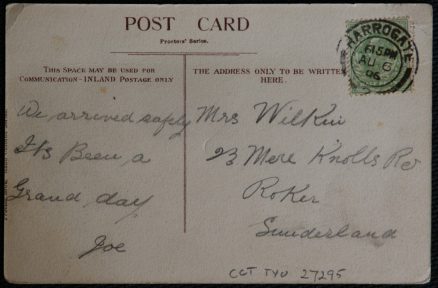 POST CARD
Printers' Series.
THIS SPACE MAY BE USED FOR
COMMUNICATION—INLAND POSTAGE ONLY
THE ADDRESS ONLY TO BE WRITTEN
HERE.
HARROGATE
6 15 PM
AU 6
06
We arrived safely
It's Been, a
Grand day
Joe
Mrs Wilkin
23 Mere Knolls Rd
Roker
Sunderland
CCT TYU 27295